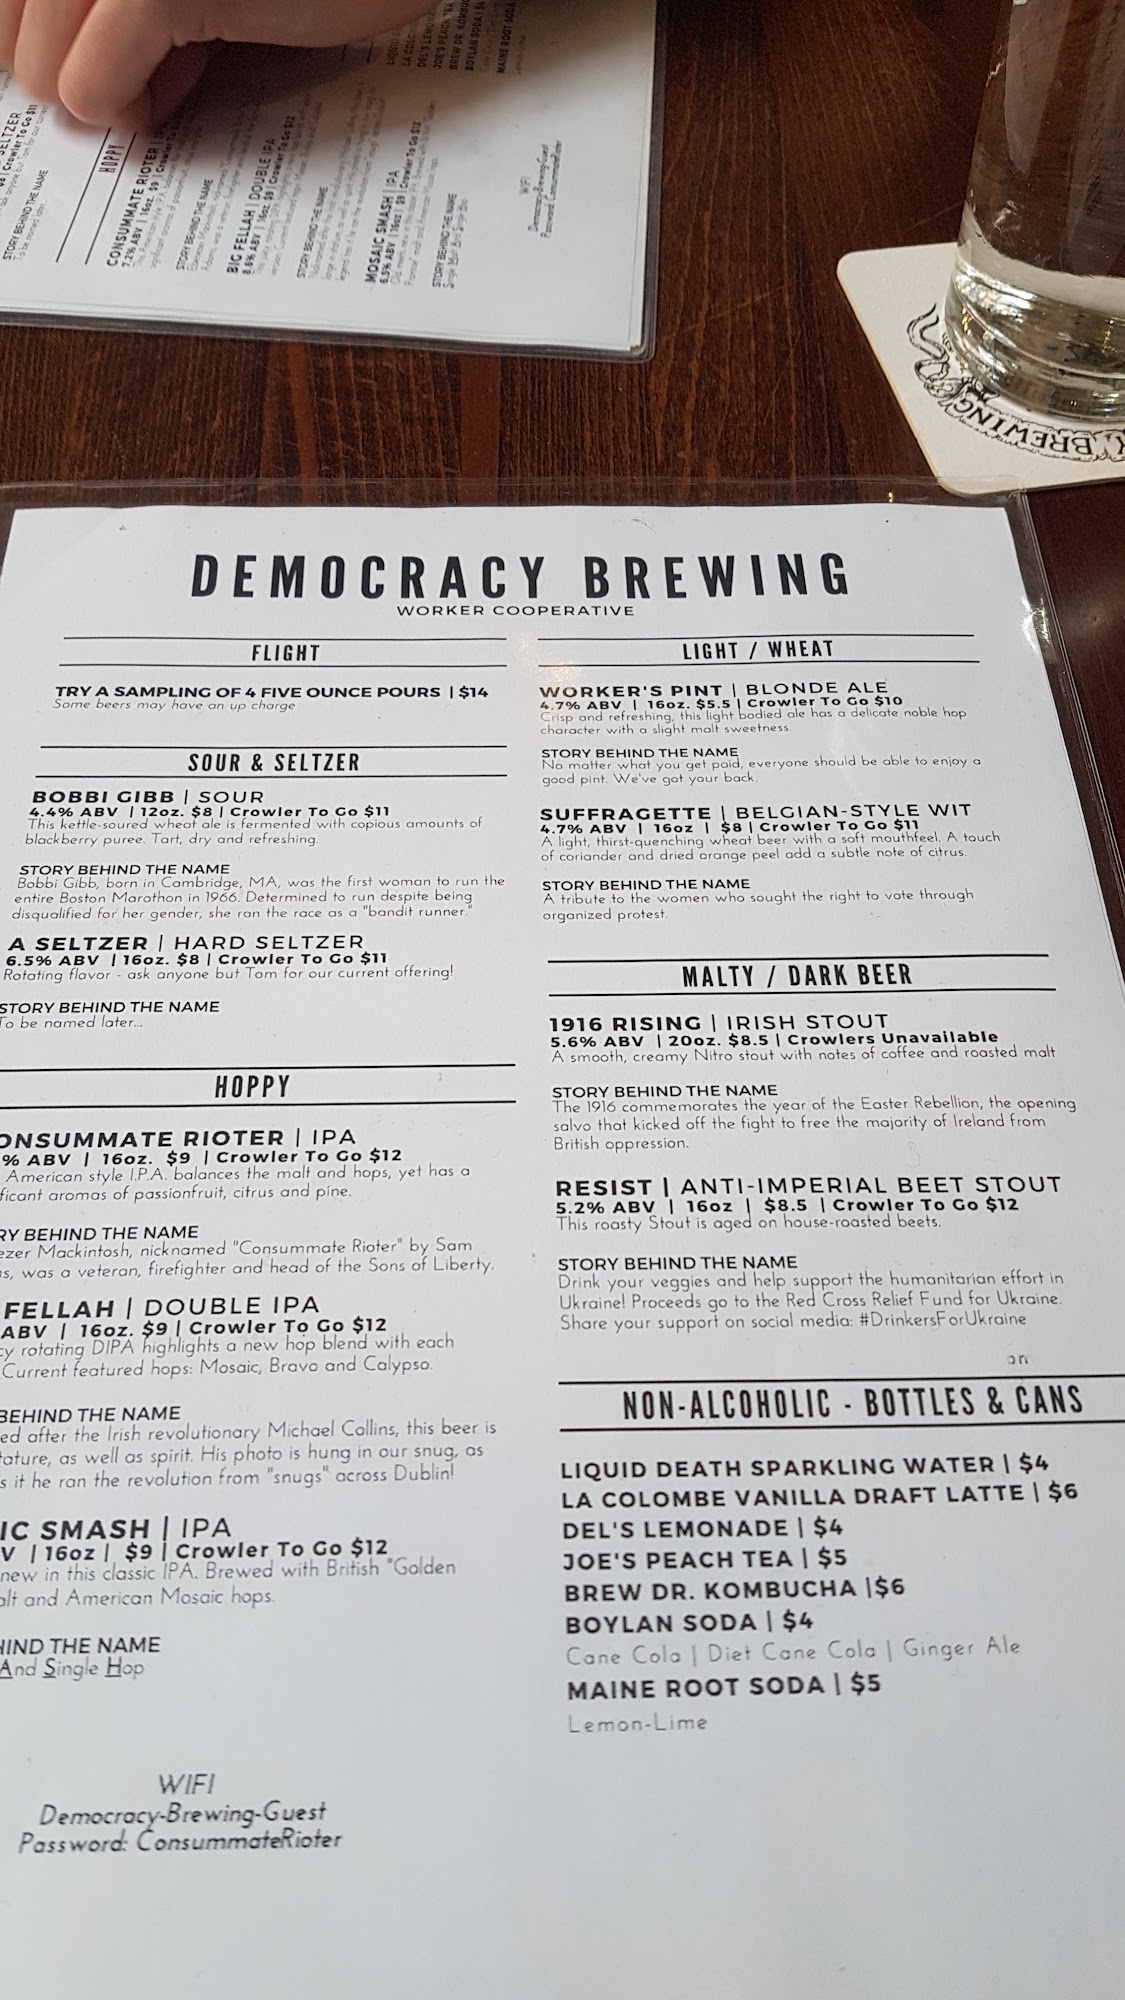 SELTZER
Crowler To Go $11
STORY BEHIND THE NAME
To be named later...
HOPPY
CONSUMMATE RIOTER |
7.2% ABV | 16oz. $9 |
STORY BEHIND THE NAME
BIG FELLAH | DOUBLE IPA
8.6% ABV | 16oz. $9 | Crowler To Go $12
STORY BEHIND THE NAME
MOSAIC SMASH | IPA
6.5% ABV | 16oz | $9 | Crowler To Go $12
STORY BEHIND THE NAME
WIFI
Democracy-Brewing-Guest
Password: ConsummateRioter
BOYLAN SODA |
MAINE ROOT SODA
BREWING
DEMOCRACY BREWING
WORKER COOPERATIVE
FLIGHT
TRY A SAMPLING OF 4 FIVE OUNCE POURS | $14
Some beers may have an up charge
SOUR & SELTZER
BOBBI GIBB | SOUR
4.4% ABV | 12oz. $8 | Crowler To Go $11
This kettle-soured wheat ale is fermented with copious amounts of
blackberry puree. Tart, dry and refreshing.
STORY BEHIND THE NAME
Bobbi Gibb, born in Cambridge, MA, was the first woman to run the
entire Boston Marathon in 1966. Determined to run despite being
disqualified for her gender, she ran the race as a "bandit runner."
A SELTZER | HARD SELTZER
6.5% ABV | 16oz. $8 | Crowler To Go $11
Rotating flavor - ask anyone but Tom for our current offering!
STORY BEHIND THE NAME
To be named later...
HOPPY
ONSUMMATE RIOTER | IPA
% ABV | 16oz. $9 | Crowler To Go $12
American style I.P.A. balances the malt and hops, yet has a
ficant aromas of passionfruit, citrus and pine.
RY BEHIND THE NAME
ezer Mackintosh, nicknamed "Consummate Rioter" by Sam
s, was a veteran, firefighter and head of the Sons of Liberty.
FELLAH | DOUBLE IPA
ABV | 16oz. $9 | Crowler To Go $12
cy rotating DIPA highlights a new hop blend with each
Current featured hops: Mosaic, Bravo and Calypso.
BEHIND THE NAME
ed after the Irish revolutionary Michael Collins, this beer is
tature, as well as spirit. His photo is hung in our snug, as
s it he ran the revolution from "snugs" across Dublin!
IC SMASH | IPA
V | 16oz | $9 | Crowler To Go $12
new in this classic IPA. Brewed with British "Golden
alt and American Mosaic hops.
HIND THE NAME
And Single Hop
WIFI
Democracy-Brewing-Guest
Password: ConsummateRioter
LIGHT / WHEAT
WORKER'S PINT | BLONDE ALE
4.7% ABV | 16oz. $5.5 | Crowler To Go $10
Crisp and refreshing, this light bodied ale has a delicate noble hop
character with a slight malt sweetness.
STORY BEHIND THE NAME
No matter what you get paid, everyone should be able to enjoy a
good pint. We've got your back.
SUFFRAGETTE | BELGIAN-STYLE WIT
4.7% ABV | 16oz | $8 | Crowler To Go $11
A light, thirst-quenching wheat beer with a soft mouthfeel. A touch
of coriander and dried orange peel add a subtle note of citrus.
STORY BEHIND THE NAME
A tribute to the women who sought the right to vote through
organized protest.
MALTY / DARK BEER
1916 RISING | IRISH STOUT
5.6% ABV | 20oz. $8.5 | Crowlers Unavailable
A smooth, creamy Nitro stout with notes of coffee and roasted malt
STORY BEHIND THE NAME
The 1916 commemorates the year of the Easter Rebellion, the opening
salvo that kicked off the fight to free the majority of Ireland from
British oppression.
RESIST | ANTI-IMPERIAL BEET STOUT
5.2% ABV | 16oz | $8.5 | Crowler To Go $12
This roasty Stout is aged on house-roasted beets.
STORY BEHIND THE NAME
Drink your veggies and help support the humanitarian effort in
Ukraine! Proceeds go to the Red Cross Relief Fund for Ukraine.
Share your support on social media: #DrinkersForUkraine
NON-ALCOHOLIC - BOTTLES & CANS
LIQUID DEATH SPARKLING WATER | $4
LA COLOMBE VANILLA DRAFT LATTE | $6
DEL'S LEMONADE | $4
JOE'S PEACH TEA | $5
BREW DR. KOMBUCHA |$6
BOYLAN SODA | $4
Cane Cola | Diet Cane Cola | Ginger Ale
MAINE ROOT SODA | $5
Lemon-Lime